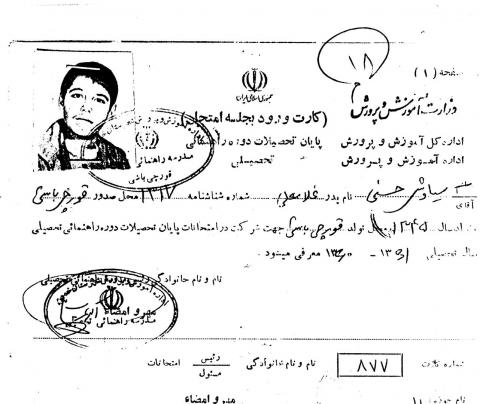 ۱۸
صفحه (۱)
جمهوری اسلامی ایران
وزارت آموزش و پرورش
(کارت ورود بجلسه امتحان)
اداره کل آموزش و پرورش
پایان تحصیلات دوره راهنمائی
اداره آموزش و پرورش
تحصیلی
مدرسه راهنمائی
قورچی باشی
آقای سیاوش حسنی نام پدر غلامعلی شماره شناسنامه ۱۲۱۷ محل صدور قورچی باسی
متولد سال ۱۳۴۵ محل تولد قورچی باسی جهت شرکت در امتحانات پایان تحصیلات دوره راهنمائی تحصیلی
سال تحصیلی ۱۳۶۱ - ۱۳۶۰ معرفی میشود .
نام و نام خانوادگی رئیس مدرسه راهنمائی تحصیلی
مهر و امضاء
مدرسه راهنمائی
شماره کارت ۸۷۷ نام و نام خانوادگی رئیس مسئول امتحانات
مهر و امضاء